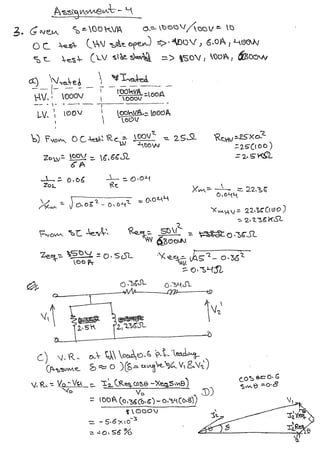 Assignment - 4
3. Given S=100kVA a=1000V/100V = 10
OC test (HV side open) => 100V, 6.0A, 400W
SC test (LV side shorted) => 50V, 100A, 3600W
a) Vrated Irated
HV: 1000V 100kVA/1000V =100A
LV: 100V 100kVA/100V = 1000A
b) From OC test: Rc = 100V²/400W = 25Ω RcHV=25xa²
=25(100)
=2.5kΩ
ZoLV= 100V/6A = 16.66Ω
1/ZoL = 0.06 1/Rc = 0.04
1/Xm = √0.06² - 0.04² = 0.044 Xm= 1/0.044 = 22.36
XmHV= 22.36(100)
= 2.236kΩ
From SC test: ReqHV = 50V²/ = 0.36Ω
Zeq= 50V/100A = 0.5Ω Xeq= √.5² - 0.36²
= 0.34Ω
0.36Ω 0.34Ω
V1 2.5k 2.236Ω V2'
c) V.R. at full load, 0.6 p.f. leading
(Assume δ≈0) (δ=angle b/w V1 & V2')
V.R. = = I2'(Req cosθ - Xeq sinθ)/Vo
cosθ=0.6
sinθ=0.8
= 100A(0.36(0.6) - 0.34(0.8))/1000V
= -5.6x10⁻³
= -0.56%
D)
V1
I2'
θ δ